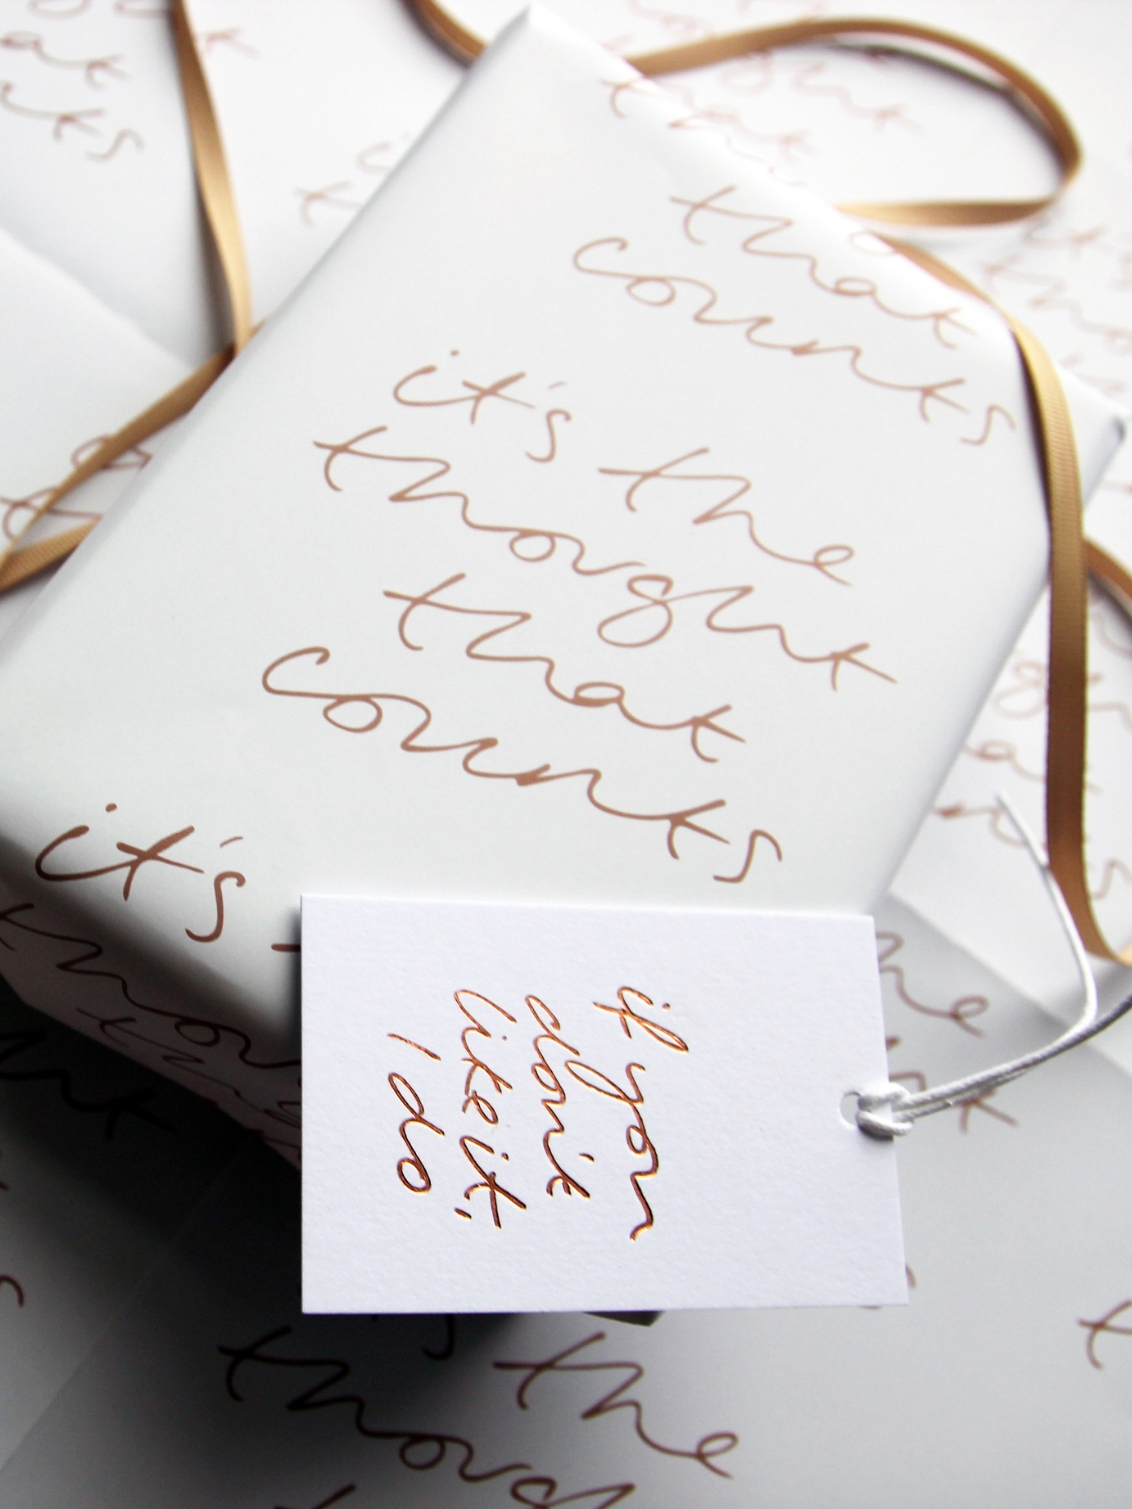 that
counts
it's the
thought
that
counts
it's
if you
don't
like it,
I do
the
though